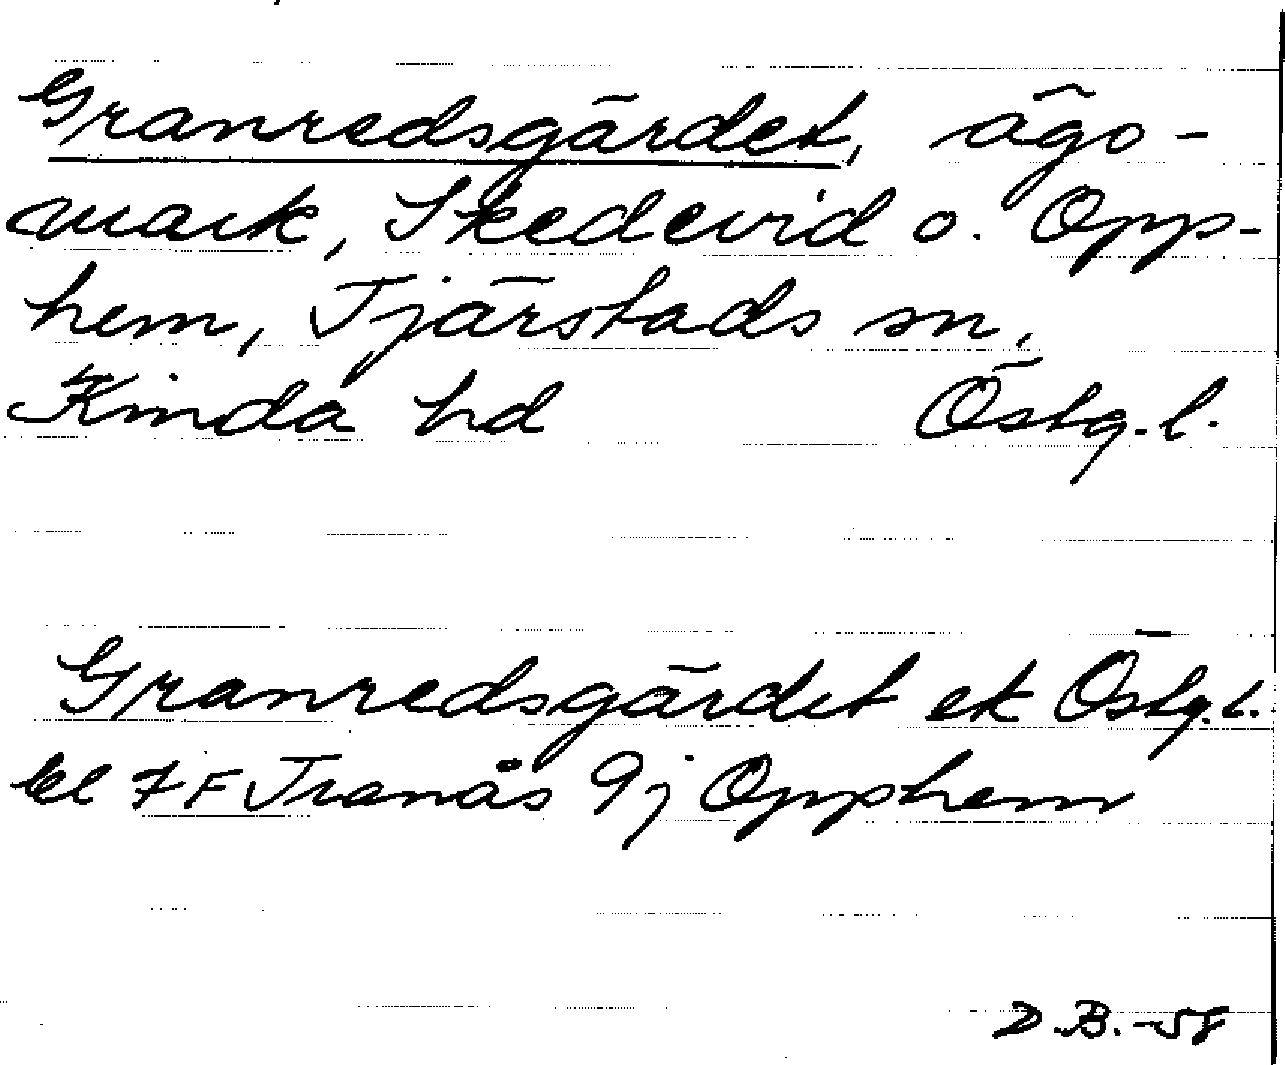 Granredsgärdet, ägo-
mark, Skedevid o. Opp-
hem, Tjärstads sn,
Kinda hd Östg. l.
Granredsgärdet ek Östg. l.
bl 7F Tranås 9j Opphem
D.B. -58